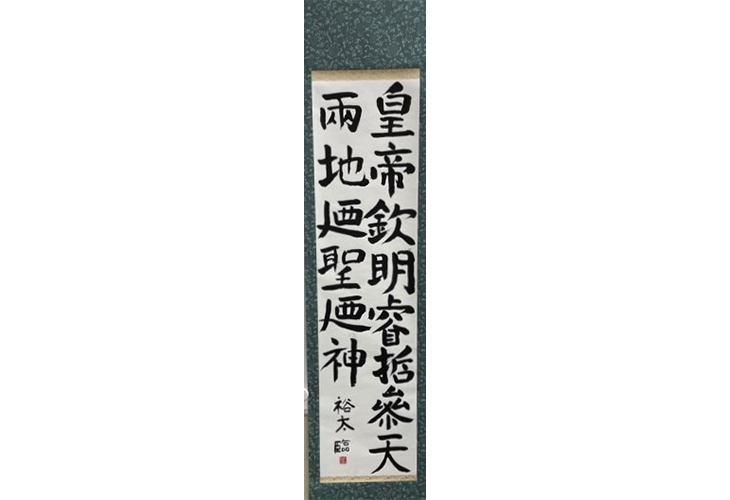 皇帝欽明睿哲參天
兩地廼聖廼神
裕太臨